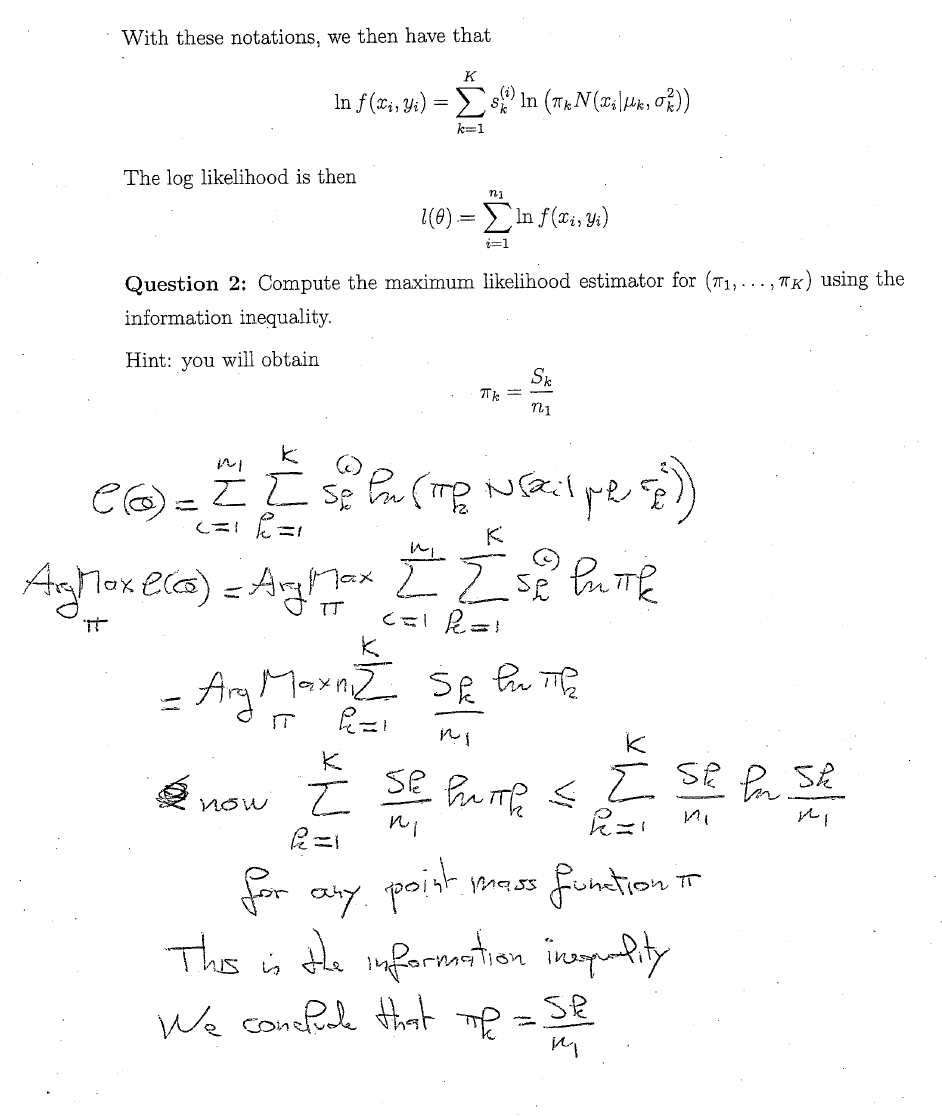 With these notations, we then have that
ln f(x_i, y_i) = \sum_{k=1}^{K} s_k^{(i)} ln (π_k N(x_i|μ_k, σ_k^2))
The log likelihood is then
l(θ) = \sum_{i=1}^{n_1} ln f(x_i, y_i)
Question 2: Compute the maximum likelihood estimator for (π_1, . . . , π_K) using the
information inequality.
Hint: you will obtain
π_k = \frac{S_k}{n_1}
l(θ) = \sum_{i=1}^{n_1} \sum_{k=1}^{K} s_k^{(i)} ln (π_k N(x_i| μ_k σ_k^2))
ArgMax_π l(θ) = ArgMax_π \sum_{i=1}^{n_1} \sum_{k=1}^{K} s_k^{(i)} ln π_k
= ArgMax_π n_1 \sum_{k=1}^{K} \frac{S_k}{n_1} ln π_k
now \sum_{k=1}^{K} \frac{S_k}{n_1} ln π_k ≤ \sum_{k=1}^{K} \frac{S_k}{n_1} ln \frac{S_k}{n_1}
for any point mass function π
This is the information inequality
We conclude that π_k = \frac{S_k}{n_1}